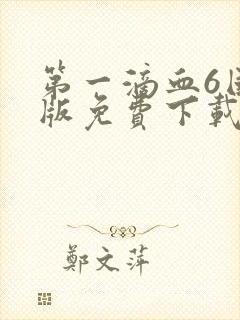 第一滴血6国
版免費下載
鄭文萍